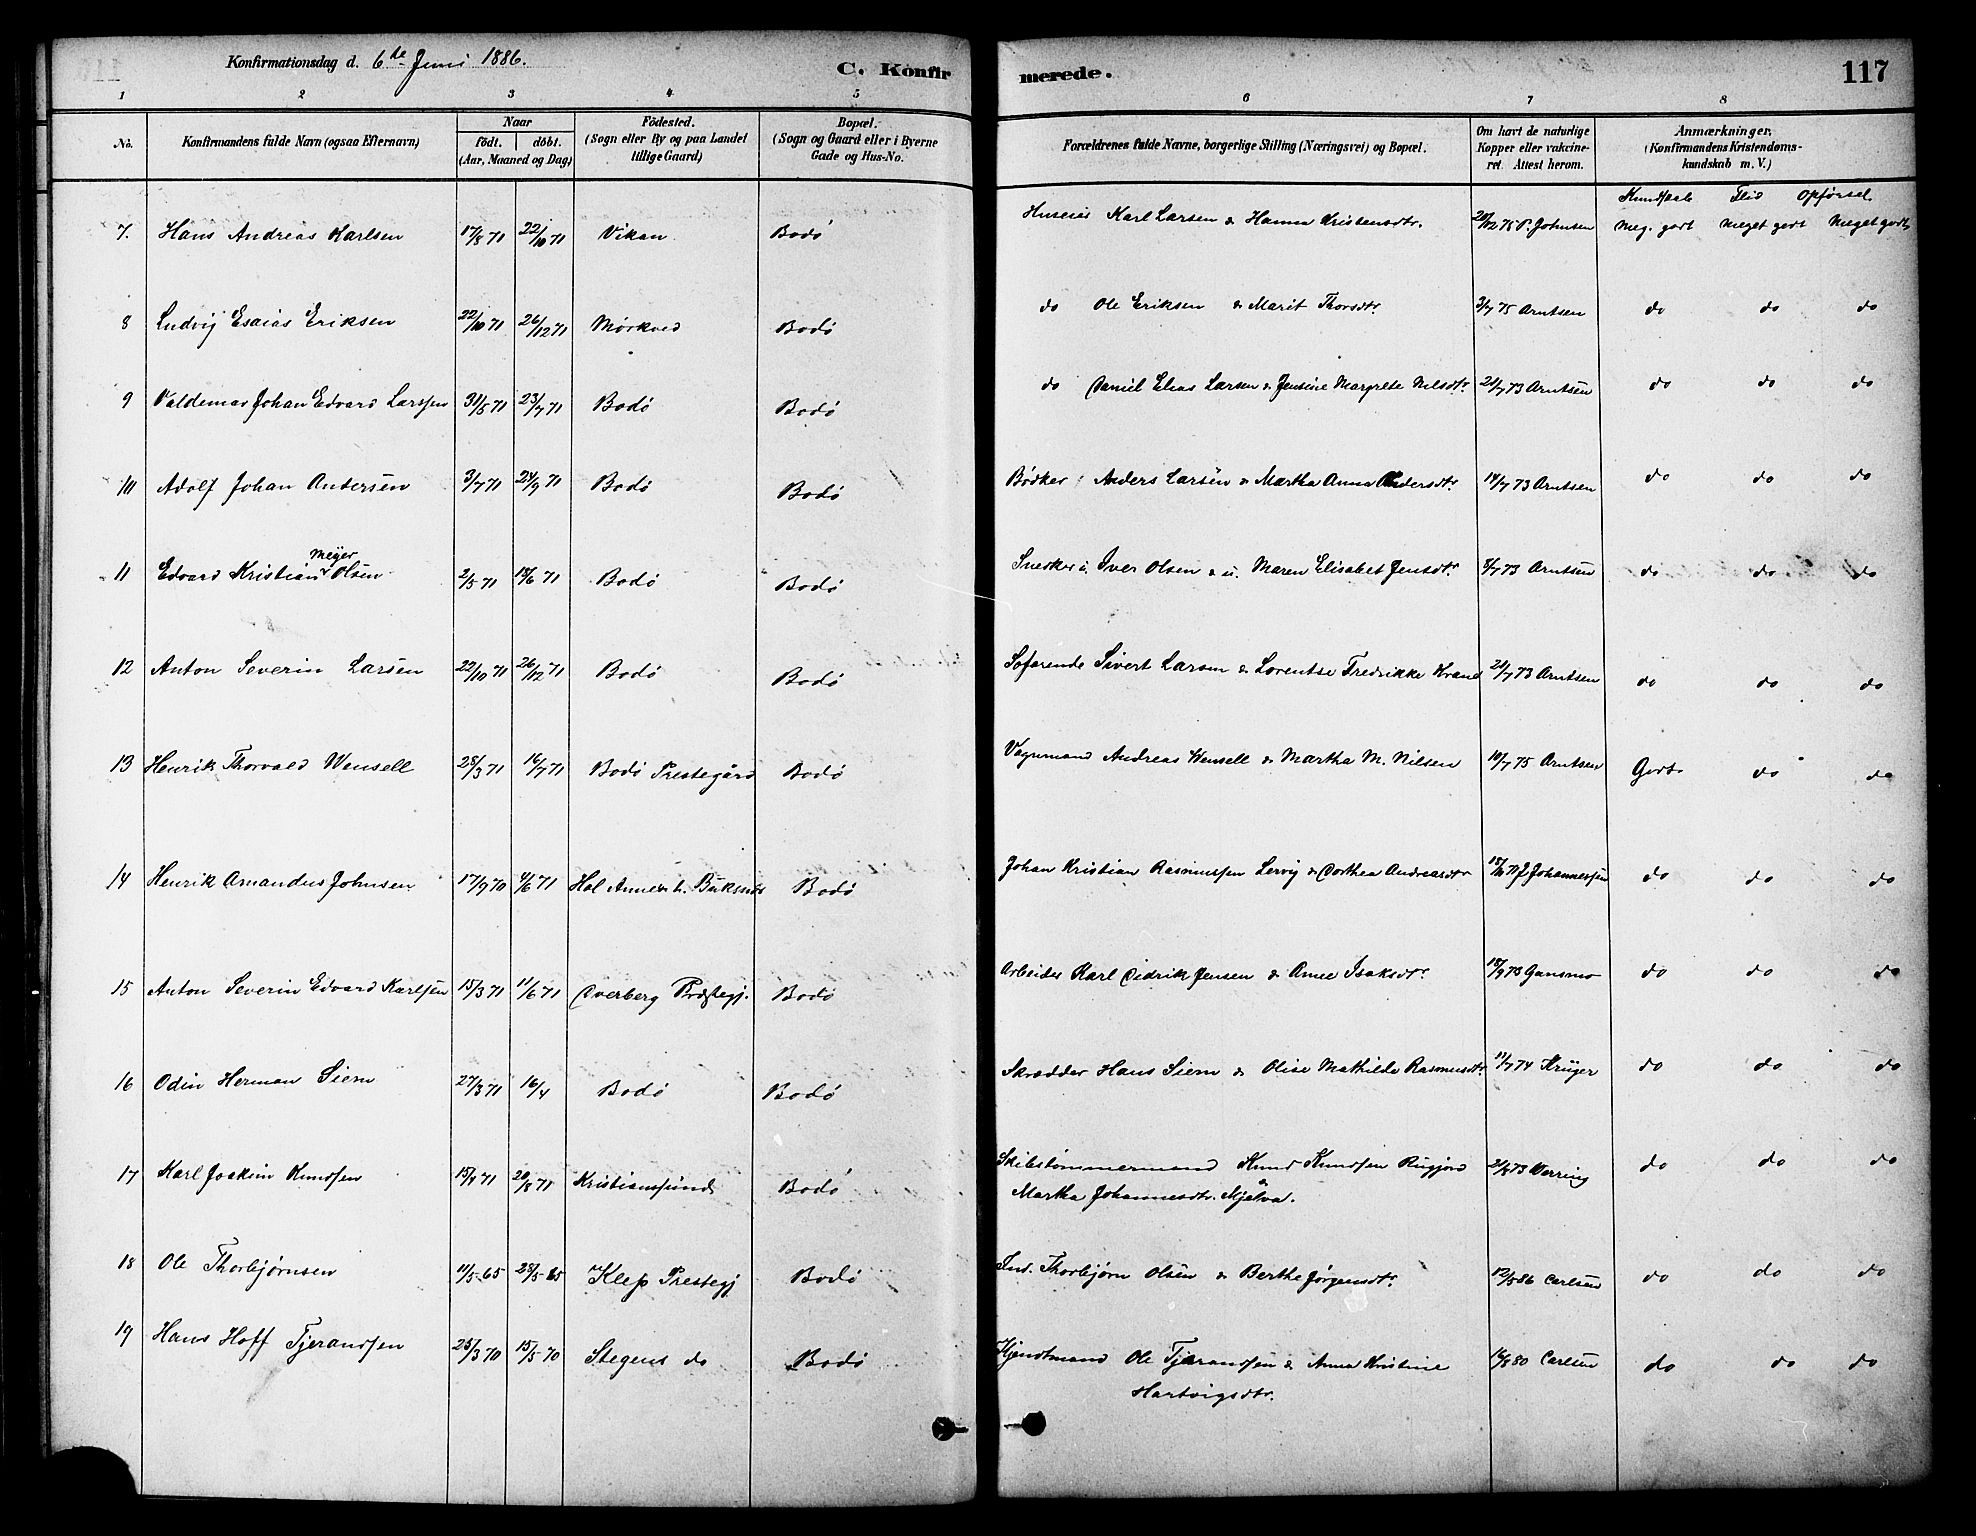 Konfirmationsdag d. 6te Juni 1886.
C. Konfirmerede.
117
1 2 3 4 5 6 7 8
No. Konfirmandens fulde Navn (ogsaa Efternavn) Naar födt. döbt. (Aar, Maaned og Dag) Födested. (Sogn eller By og paa Landet tillige Gaard) Bopæl. (Sogn og Gaard eller i Byerne Gade og Hus-No. Forældrenes fulde Navne, borgerlige Stilling (Næringsvei) og Bopæl. Om havt de naturlige Kopper eller vakcineret. Attest herom. Anmærkninger, (Konfirmandens Kristendomskundskab m. V.)
Kundskab Flid Opførsel.
7. Hans Andreas Karlsen 17/8 71 22/10 71 Vikan Bodö Huseier Karl Larsen & Hanna Kristensdtr. 20/12 75 P. Johnsen Meg. godt Meget godt Meget godt
8 Ludvig Esaias Eriksen 22/10 71 26/12 71 Mørkved Bodö do Ole Eriksen & Marit Thorsdtr. 3/7 75 Arntsen do do do
9 Valdemar Johan Edvard Larssen 31/5 71 23/7 71 Bodö Bodö do Daniel Elias Larsen & Jensine Margrete Nilsdtr. 21/7 73 Arntsen do do do
10 Adolf Johan Andersen 3/7 71 24/9 71 Bodö Bodö Bødker Anders Larsen & Martha Anna Andersdtr. 14/7 73 Arntsen do do do
11 Edvard Kristian Meyer Olsen 2/5 71 18/6 71 Bodö Bodö Snedker u. Iver Olsen & u. Maren Elisabet Jensdtr. 8/7 73 Arntsen do do do
12 Anton Severin Larsen 22/10 71 26/12 71 Bodö Bodö Søfarende Sivert Larsen & Lorentse Fredrikke Krane 21/7 73 Arntsen do do do
13 Henrik Thorvald Wensell 28/3 71 16/7 71 Bodö Prestegård Bodö Vognmand Andreas Wensell & Martha M. Nilsen 10/7 75 Arntsen Godt do do
14 Henrik Amandus Johnsen 17/9 70 4/6 71 Hol Annex t. Buksnes Bodö Johan Kristian Rasmussen Lervig & Dorthea Andreasdtr J Johannessen do do do
15 Anton Severin Edvard Karlsen 15/3 71 11/6 71 Överberg Præstegj. Bodö Arbeider Karl Didrik Jensen & Ane Isaksdtr. 18/9 73 Gansmo do do do
16 Odin Herman Siem 27/3 71 16/4 Bodö Bodö Skrædder Hans Siem & Olise Mathilde Rasmusdtr. 11/7 74 Krüger do do do
17 Karl Joakim Knudsen 15/4 71 20/8 71 Kristianssund Bodö Skibstømmermand Knud Knudsen Rugjord &
Martha Johannesdtr. Mjelva. 2/8 73 Werring do do do
18 Ole Thorbjørnsen 11/5 65 28/5 65 Klep Prestegj Bodö Ind. Thorbjørn Olsen & Berthe Jørgensdtr. 12/5 86 Carlsen do do do
19 Hans Hoff Tjerandsen 23/3 70 15/5 70 Stegens do Bodö Hjendtmand Ole Tjerandsen & Anna Kristine
Hartvigsdtr. 16/8 80 Carlsen do do do